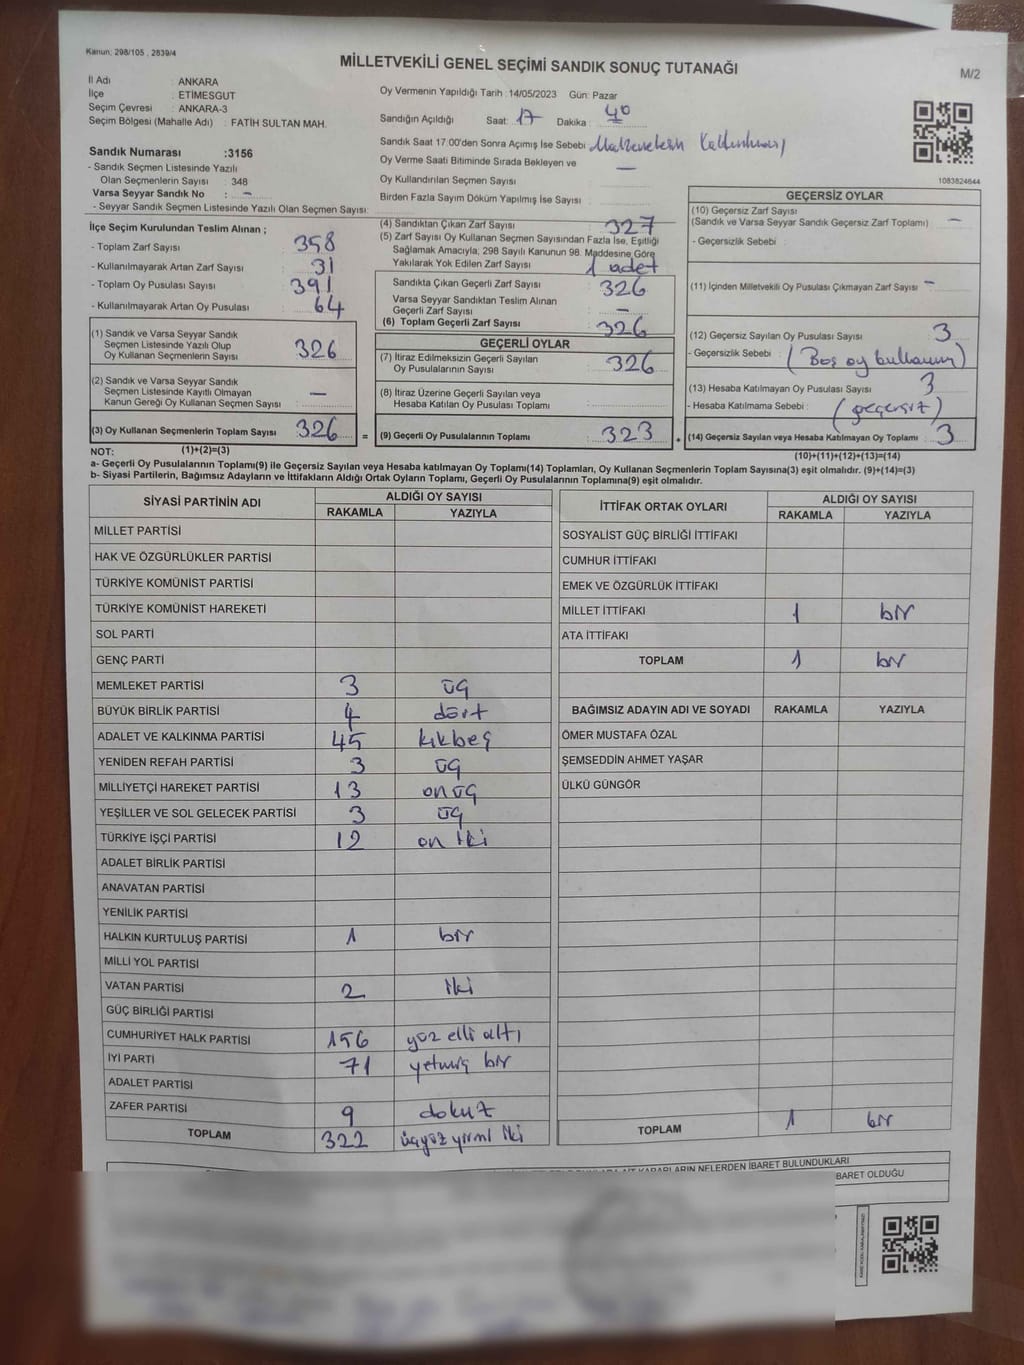 Kanun: 298/105 , 2839/4
MİLLETVEKİLİ GENEL SEÇİMİ SANDIK SONUÇ TUTANAĞI
M/2
İl Adı : ANKARA
İlçe : ETİMESGUT
Seçim Çevresi : ANKARA-3
Seçim Bölgesi (Mahalle Adı) : FATİH SULTAN MAH.
Sandık Numarası :3156
- Sandık Seçmen Listesinde Yazılı
Olan Seçmenlerin Sayısı : 348
Varsa Seyyar Sandık No : -
- Seyyar Sandık Seçmen Listesinde Yazılı Olan Seçmen Sayısı:
Oy Vermenin Yapıldığı Tarih :14/05/2023 Gün: Pazar
Sandığın Açıldığı Saat: 17 Dakika : 40
Sandık Saat 17.00'den Sonra Açımış İse Sebebi
Oy Verme Saati Bitiminde Sırada Bekleyen ve —
Oy Kullandırılan Seçmen Sayısı
Birden Fazla Sayım Döküm Yapılmış İse Sayısı :
1083824644
İlçe Seçim Kurulundan Teslim Alınan ;
- Toplam Zarf Sayısı : 358
- Kullanılmayarak Artan Zarf Sayısı : 31
- Toplam Oy Pusulası Sayısı : 391
- Kullanılmayarak Artan Oy Pusulası : 64
(1) Sandık ve Varsa Seyyar Sandık
Seçmen Listesinde Yazılı Olup
Oy Kullanan Seçmenlerin Sayısı : 326
(2) Sandık ve Varsa Seyyar Sandık
Seçmen Listesinde Kayıtlı Olmayan
Kanun Gereği Oy Kullanan Seçmen Sayısı : —
(3) Oy Kullanan Seçmenlerin Toplam Sayısı : 326
(1)+(2)=(3)
(4) Sandıktan Çıkan Zarf Sayısı : 327
(5) Zarf Sayısı Oy Kullanan Seçmen Sayısından Fazla İse, Eşitliği
Sağlamak Amacıyla, 298 Sayılı Kanunun 98. Maddesine Göre
Yakılarak Yok Edilen Zarf Sayısı : 1 adet
Sandıkta Çıkan Geçerli Zarf Sayısı : 326
Varsa Seyyar Sandıktan Teslim Alınan
Geçerli Zarf Sayısı : —
(6) Toplam Geçerli Zarf Sayısı : 326
GEÇERLİ OYLAR
(7) İtiraz Edilmeksizin Geçerli Sayılan
Oy Pusulalarının Sayısı : 326
(8) İtiraz Üzerine Geçerli Sayılan veya
Hesaba Katılan Oy Pusulası Toplamı :
= (9) Geçerli Oy Pusulalarının Toplamı : 323
GEÇERSİZ OYLAR
(10) Geçersiz Zarf Sayısı
(Sandık ve Varsa Seyyar Sandık Geçersiz Zarf Toplamı) : —
- Geçersizlik Sebebi :
(11) İçinden Milletvekili Oy Pusulası Çıkmayan Zarf Sayısı : -
(12) Geçersiz Sayılan Oy Pusulası Sayısı : 3
- Geçersizlik Sebebi : (Boş oy
(13) Hesaba Katılmayan Oy Pusulası Sayısı : 3
- Hesaba Katılmama Sebebi : (geçersiz)
+ (14) Geçersiz Sayılan veya Hesaba Katılmayan Oy Toplamı : 3
(10)+(11)+(12)+(13)=(14)
NOT:
a- Geçerli Oy Pusulalarının Toplamı(9) ile Geçersiz Sayılan veya Hesaba katılmayan Oy Toplamı(14) Toplamları, Oy Kullanan Seçmenlerin Toplam Sayısına(3) eşit olmalıdır. (9)+(14)=(3)
b- Siyasi Partilerin, Bağımsız Adayların ve İttifakların Aldığı Ortak Oyların Toplamı, Geçerli Oy Pusulalarının Toplamına(9) eşit olmalıdır.
SİYASİ PARTİNİN ADI ALDIĞI OY SAYISI
RAKAMLA YAZIYLA
MİLLET PARTİSİ
HAK VE ÖZGÜRLÜKLER PARTİSİ
TÜRKİYE KOMÜNİST PARTİSİ
TÜRKİYE KOMÜNİST HAREKETİ
SOL PARTİ
GENÇ PARTİ
MEMLEKET PARTİSİ 3 üç
BÜYÜK BİRLİK PARTİSİ 4 dört
ADALET VE KALKINMA PARTİSİ 45 kıkbeş
YENİDEN REFAH PARTİSİ 3 üç
MİLLİYETÇİ HAREKET PARTİSİ 13 onüç
YEŞİLLER VE SOL GELECEK PARTİSİ 3 üç
TÜRKİYE İŞÇİ PARTİSİ 12 on iki
ADALET BİRLİK PARTİSİ
ANAVATAN PARTİSİ
YENİLİK PARTİSİ
HALKIN KURTULUŞ PARTİSİ 1 bir
MİLLİ YOL PARTİSİ
VATAN PARTİSİ 2 iki
GÜÇ BİRLİĞİ PARTİSİ
CUMHURİYET HALK PARTİSİ 156 yüz elli altı
İYİ PARTİ 71 yetmiş bir
ADALET PARTİSİ
ZAFER PARTİSİ 9 dokuz
TOPLAM 322 üçyüz yirmi iki
İTTİFAK ORTAK OYLARI ALDIĞI OY SAYISI
RAKAMLA YAZIYLA
SOSYALİST GÜÇ BİRLİĞİ İTTİFAKI
CUMHUR İTTİFAKI
EMEK VE ÖZGÜRLÜK İTTİFAKI
MİLLET İTTİFAKI 1 bir
ATA İTTİFAKI
TOPLAM 1 bir
BAĞIMSIZ ADAYIN ADI VE SOYADI RAKAMLA YAZIYLA
ÖMER MUSTAFA ÖZAL
ŞEMSEDDİN AHMET YAŞAR
ÜLKÜ GÜNGÖR
TOPLAM 1 bir
KARARLARIN NELERDEN İBARET BULUNDUKLARI
İBARET OLDUĞU